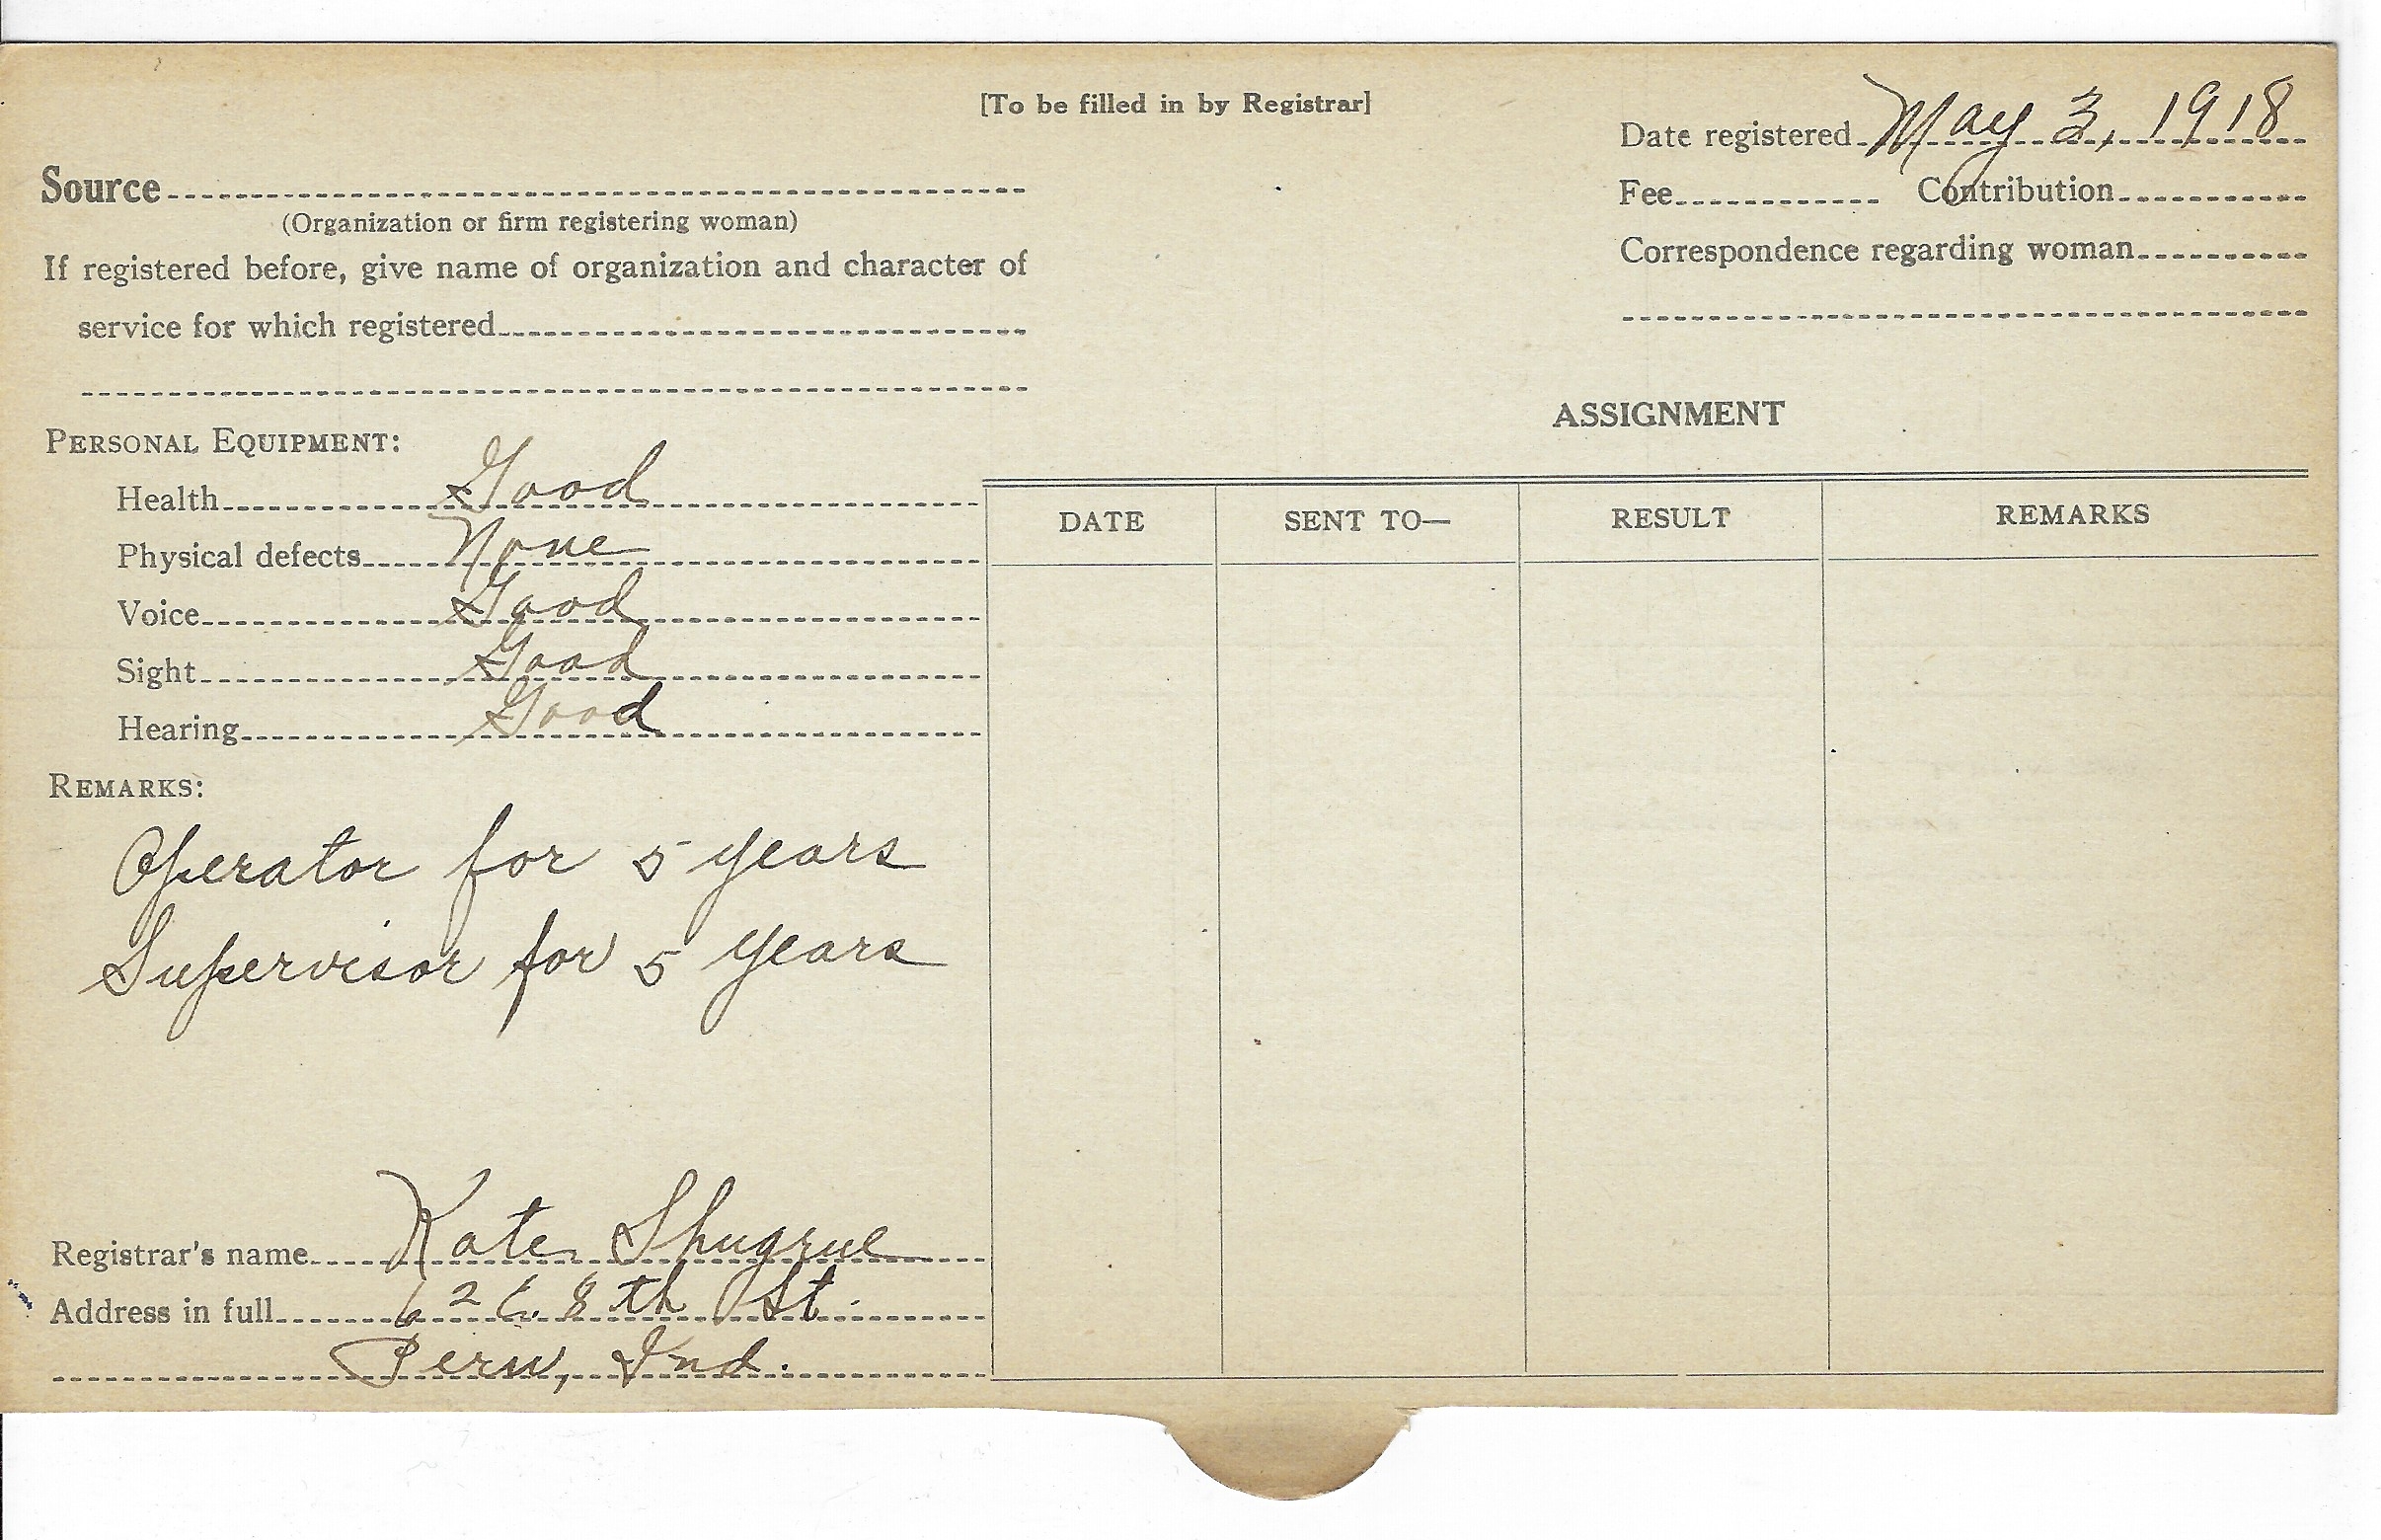 [To be filled in by Registrar]
Date registered May 3, 1918
Source
(Organization or firm registering woman)
Fee Contribution
If registered before, give name of organization and character of
service for which registered
Correspondence regarding woman
PERSONAL EQUIPMENT:
Health Good
Physical defects None
Voice Good
Sight Good
Hearing Good
REMARKS:
Operator for 5 years
Supervisor for 5 years
Registrar's name Kate Shugrue
Address in full 626. 8th St.
Peru, Ind.
ASSIGNMENT
DATE SENT TO— RESULT REMARKS